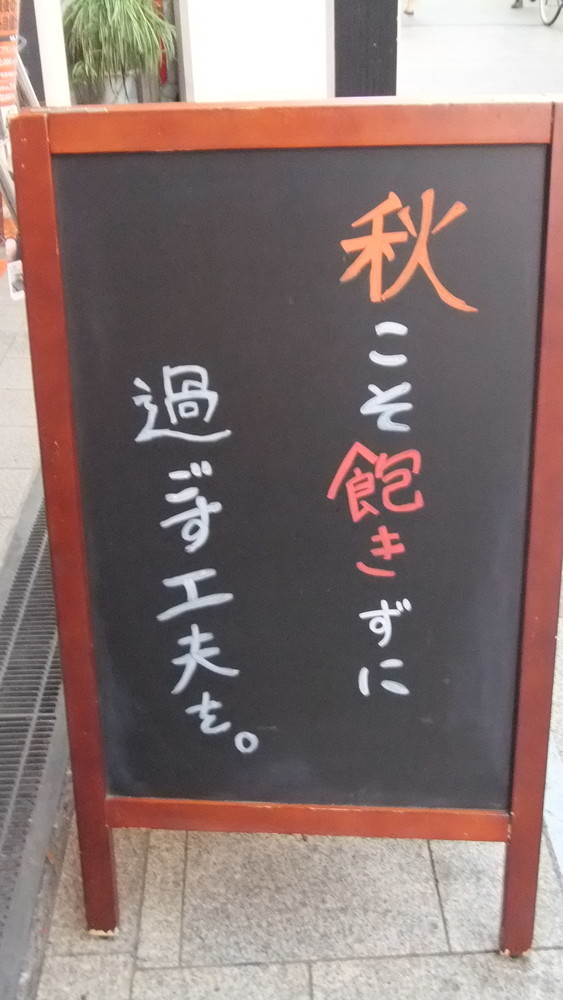 秋こそ飽きずに
過ごす工夫を。